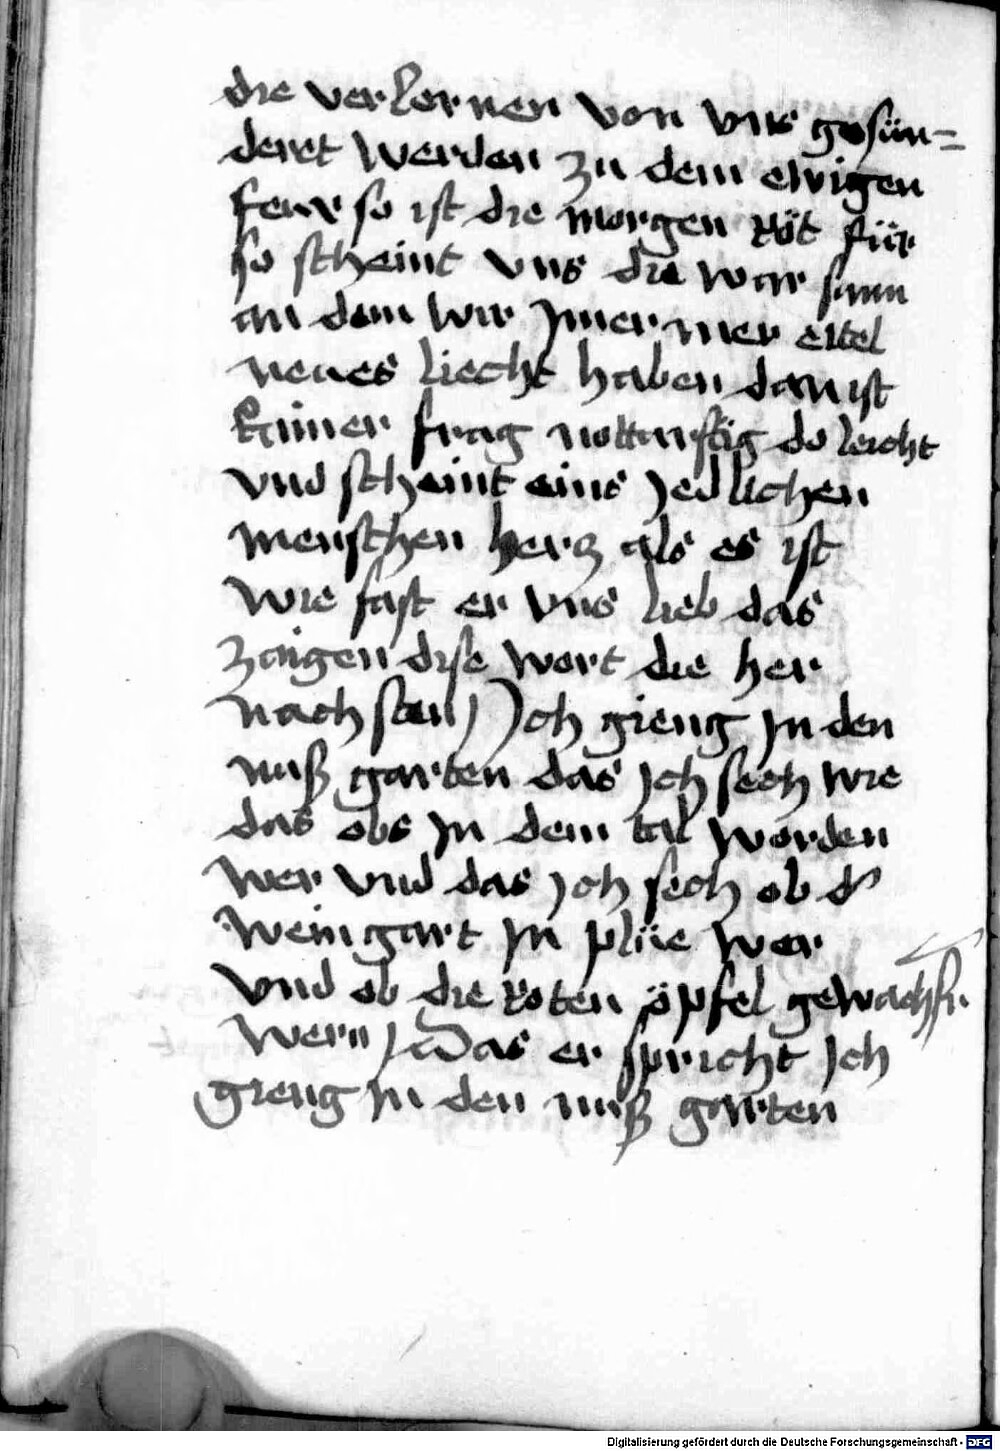 die verlornen von vns gesün=
deret werden zu dem ewigen
feur so ist die morgen röt für
so scheint vns die war sunn
an dem wir jmer mer eitel
neues liecht haben dan ist
kainer frag notturftig do leicht
vnd scheint eins jedlichen
menschen herz als es ist
wie fast er vns lieb das
zaigen dise wort die her
nach sten Jch gieng jn den
nuß garten das jch sech wie
das obs jn dem tal worden
wer vnd das jch sech ob d
weingart jn plüe wer
vnd ob die roten öpfel gewachsn
wern Das er spricht jch
gieng jn den nuß garten
Digitalisierung gefördert durch die Deutsche Forschungsgemeinschaft - DFG